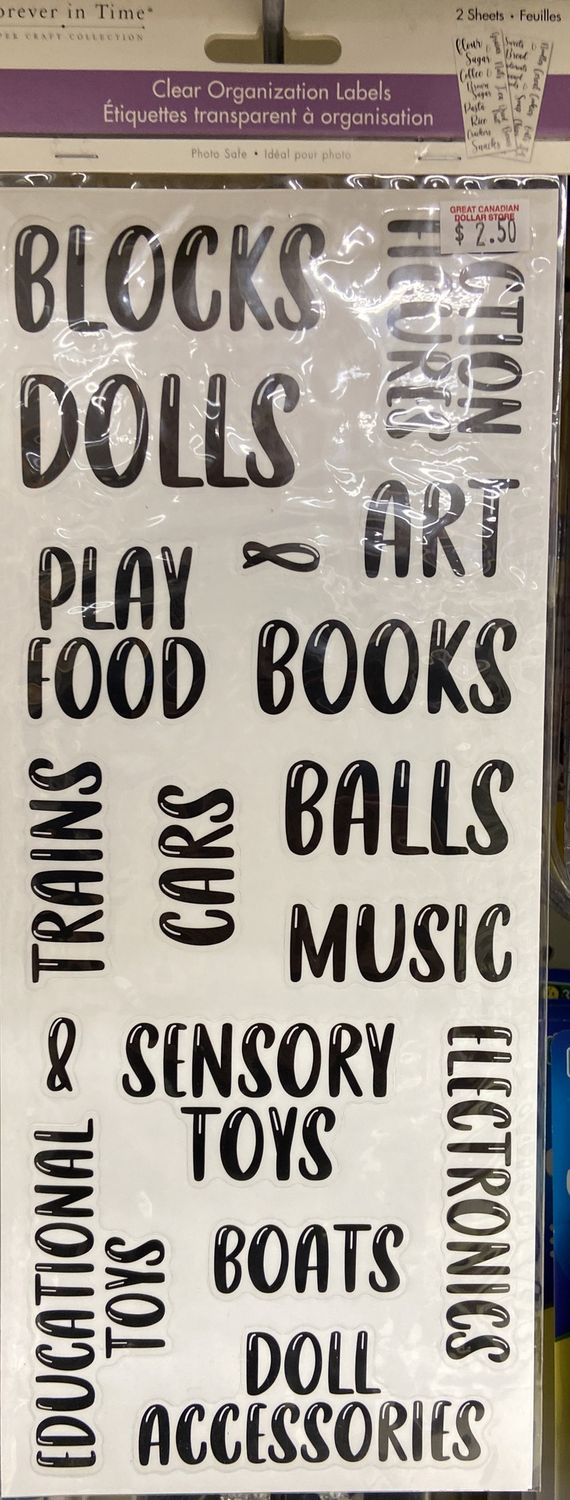 orever in Time®
PER CRAFT COLLECTION
2 Sheets • Feuilles
Clear Organization Labels
Étiquettes transparent à organisation
Photo Safe • Idéal pour photo
GREAT CANADIAN
DOLLAR STORE
$ 2.50
BLOCKS
CTION
FIGURES
DOLLS
ART
&
PLAY
FOOD
BOOKS
TRAINS
CARS
BALLS
MUSIC
&
SENSORY
TOYS
ELECTRONICS
EDUCATIONAL
TOYS
BOATS
DOLL
ACCESSORIES